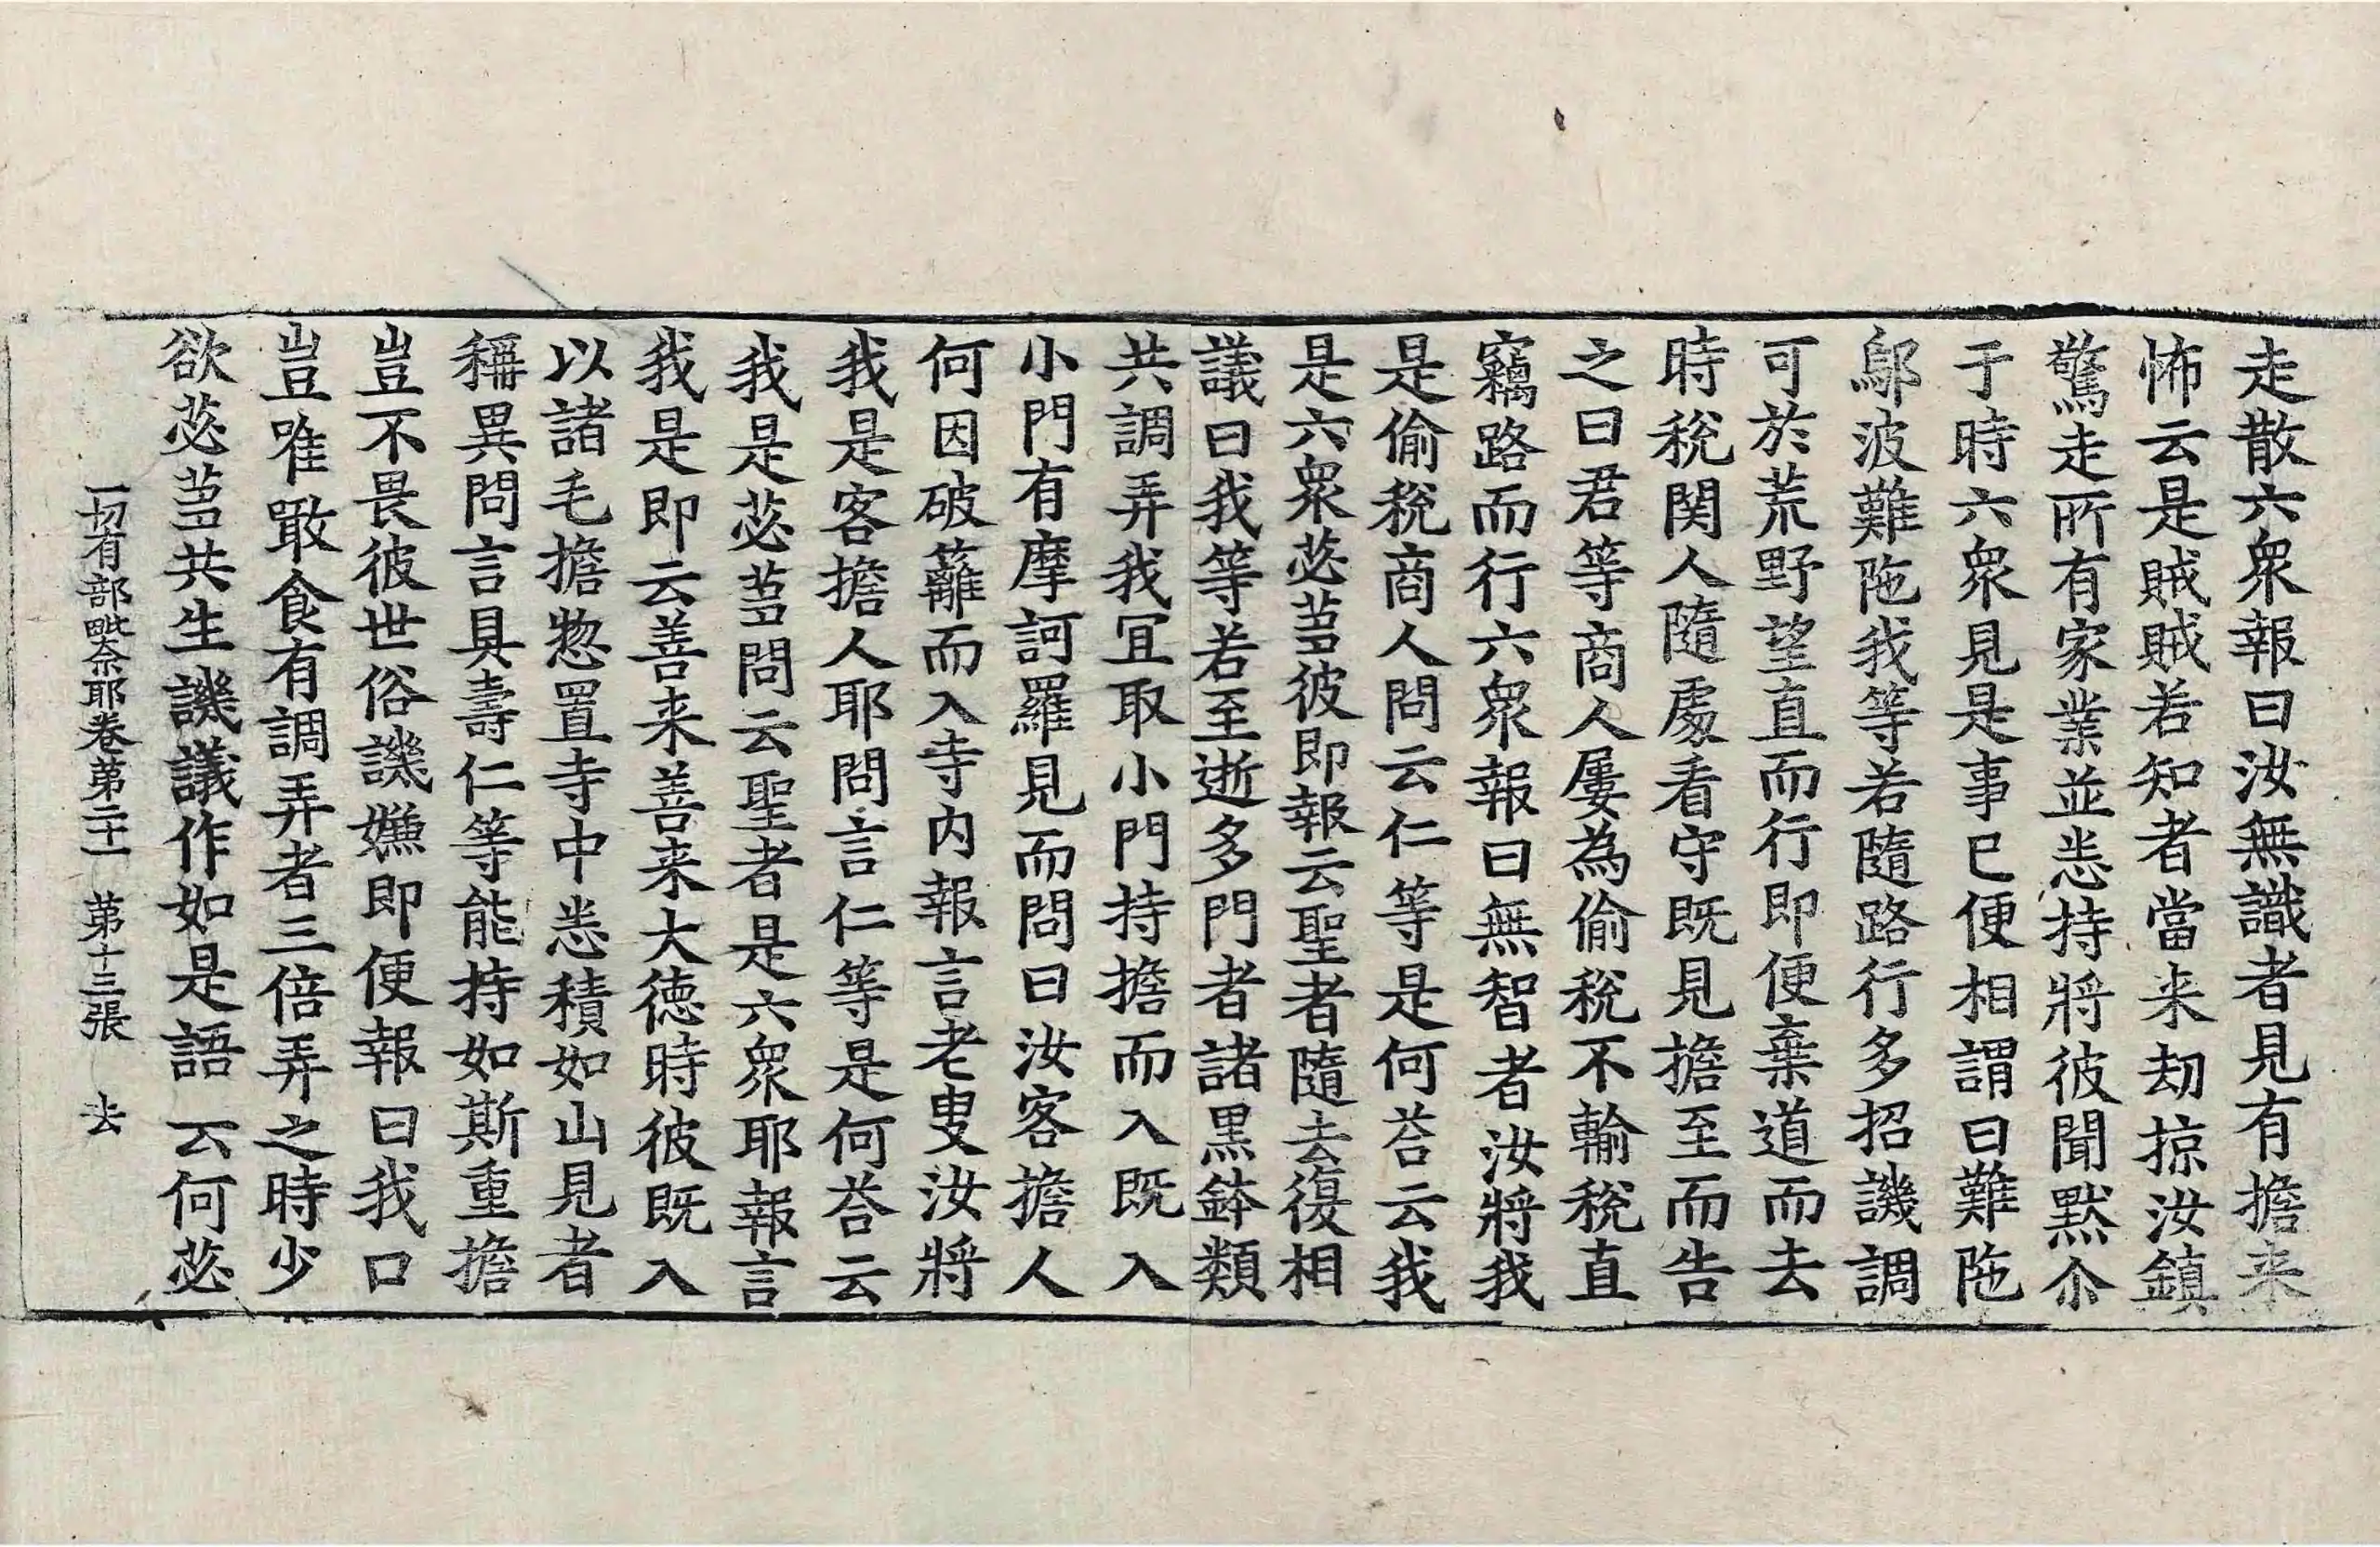 走散六衆報曰汝無識者見有擔来
怖云是賊賊若知者當来劫掠汝鎮
驚走所有家業並悉持將彼聞默尒
于時六衆見是事已便相謂曰難陁
鄔波難陁我等若隨路行多招譏調
可於荒野望直而行即便棄道而去
時稅関人隨處看守既見擔至而告
之曰君等商人屢為偷稅不輸稅直
竊路而行六衆報曰無智者汝將我
是偷稅商人問云仁等是何荅云我
是六衆苾蒭彼即報云聖者隨去復相
議曰我等若至逝多門者諸黒鉢類
共調弄我冝取小門持擔而入既入
小門有摩訶羅見而問曰汝客擔人
何因破籬而入寺内報言老叟汝將
我是客擔人耶問言仁等是何荅云
我是苾蒭問云聖者是六衆耶報言
我是即云善来善来大徳時彼既入
以諸毛擔惣置寺中悉積如山見者
稱異問言具壽仁等能持如斯重擔
豈不畏彼世俗譏嫌即便報曰我口
豈唯噉食有調弄者三倍弄之時少
欲苾蒭共生譏議作如是語云何苾
一切有部毗奈耶卷第二十一 第十三張 去